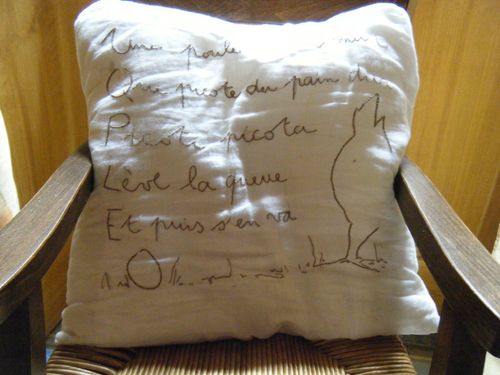 Une poule
Qui picote du pain dur
Picoti picota
Lève la queue
Et puis s'en va